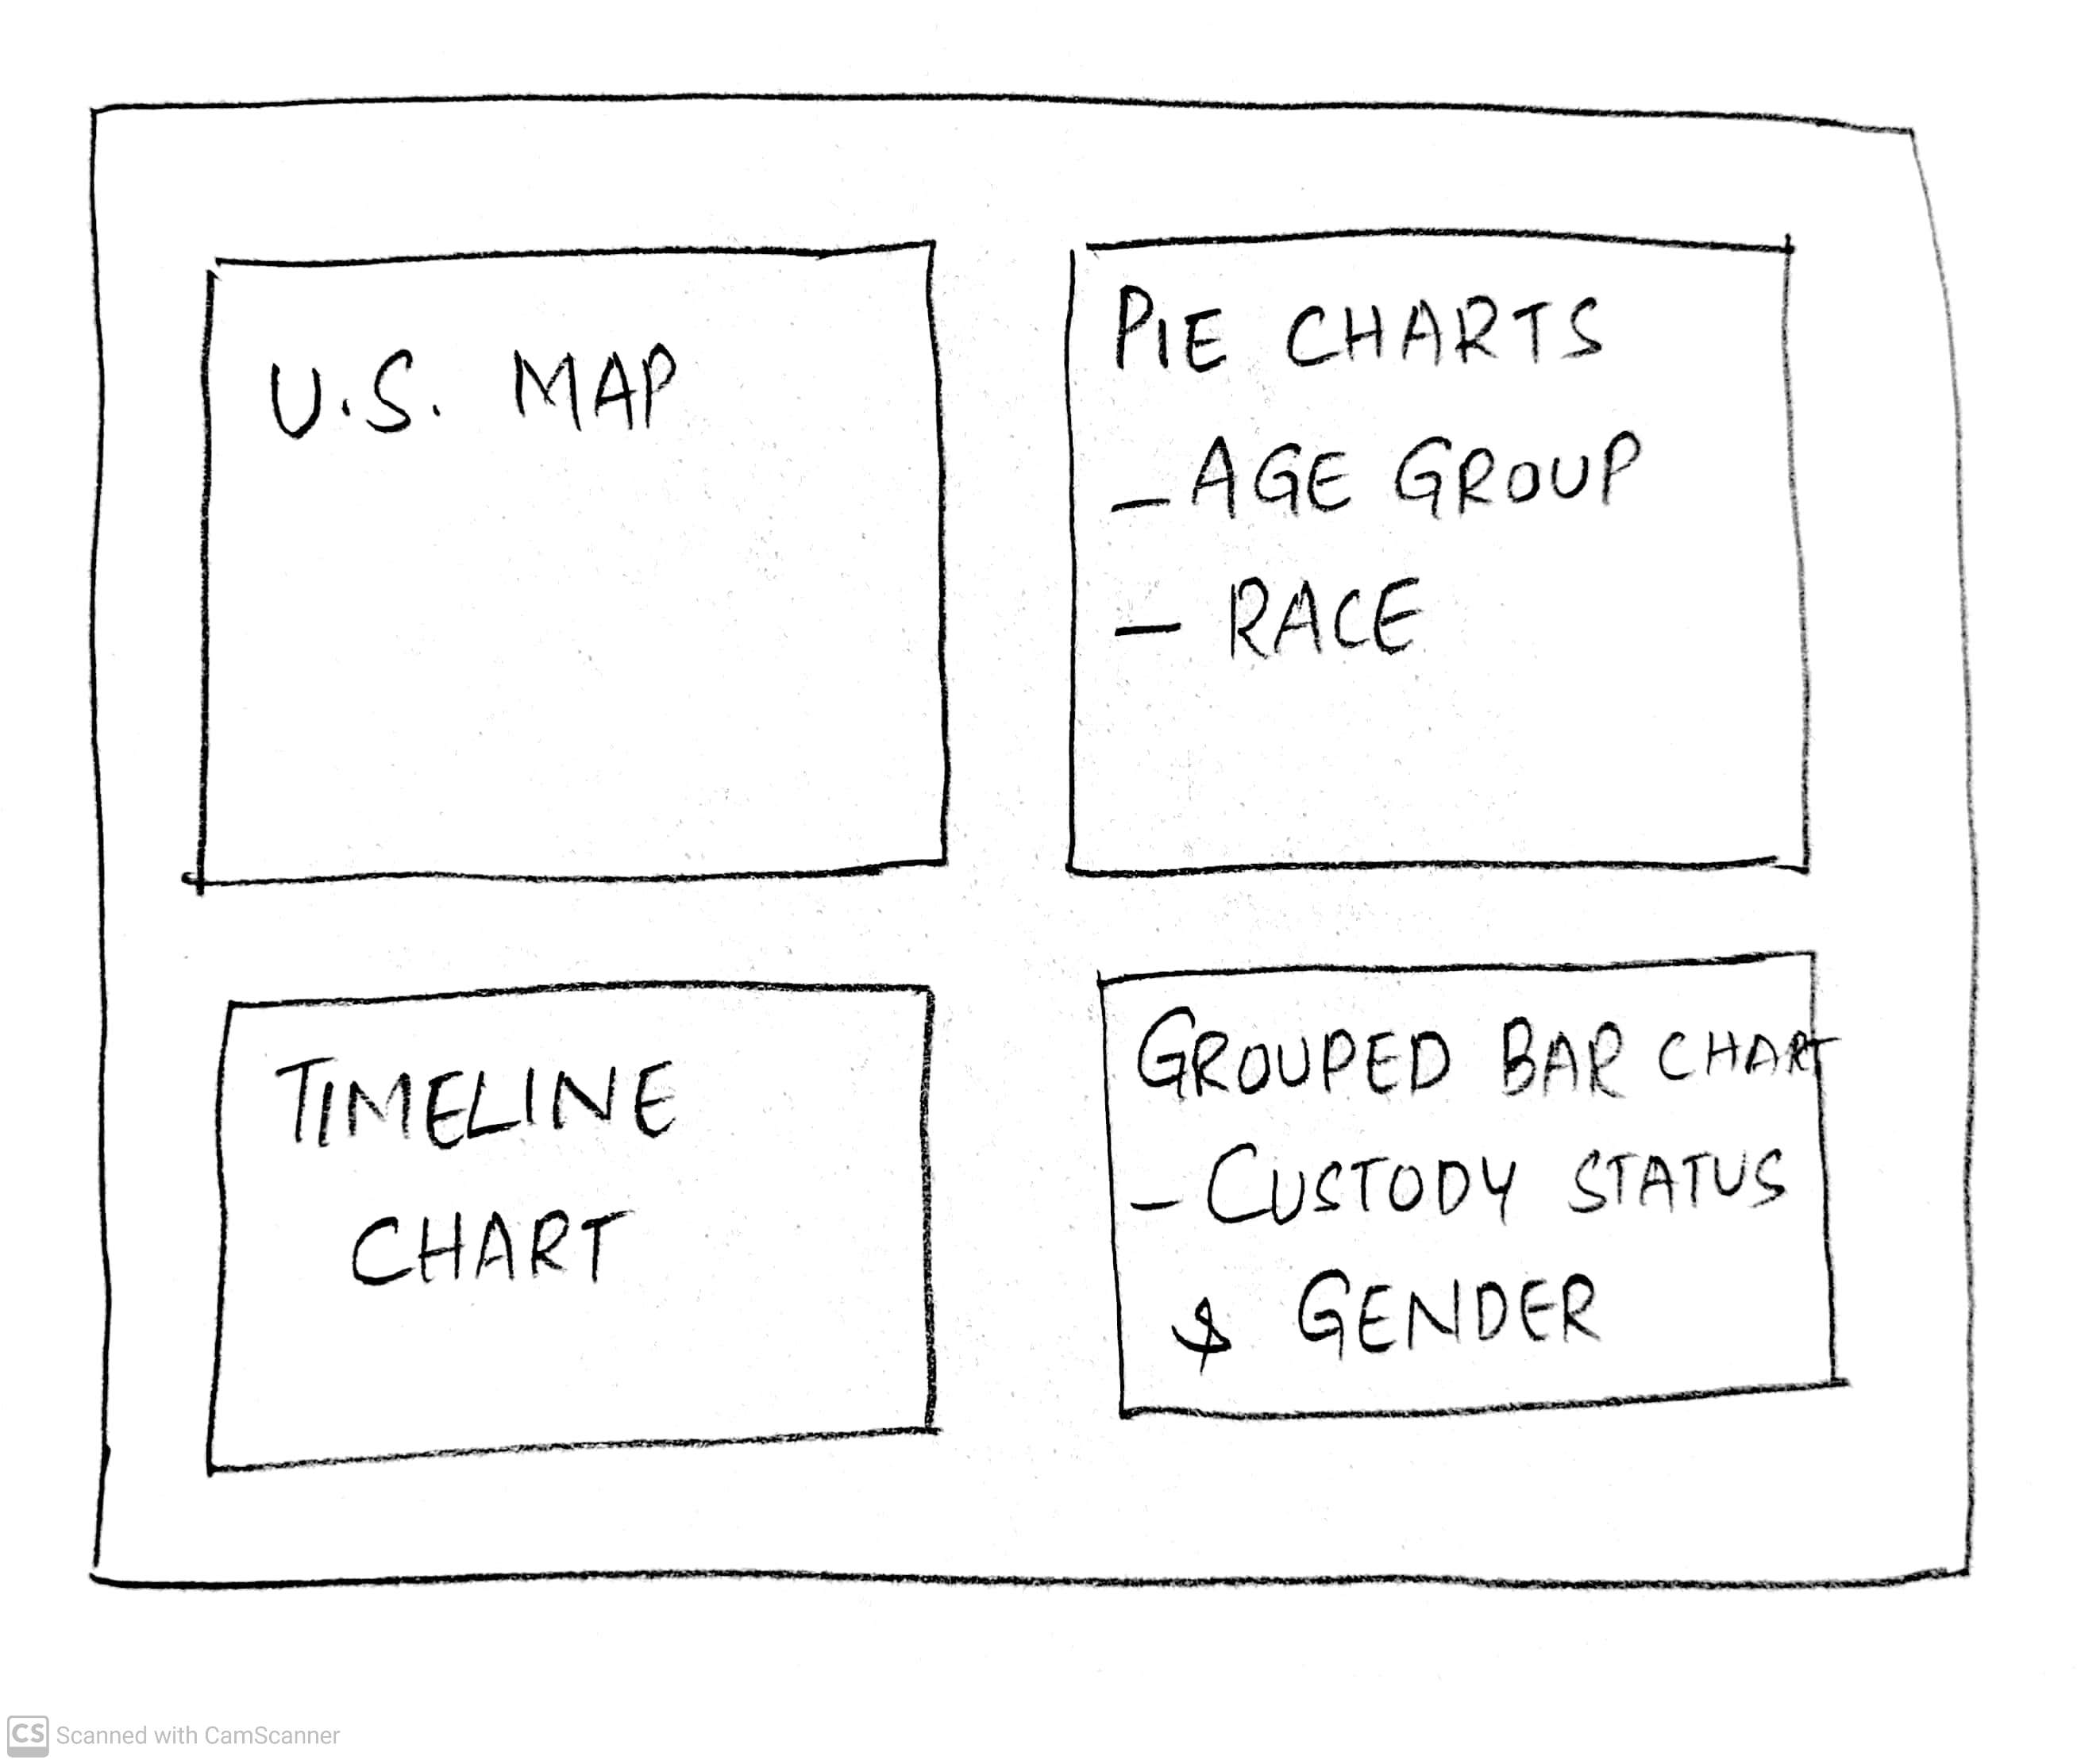 U.S. MAP
PIE CHARTS
- AGE GROUP
- RACE
TIMELINE
CHART
GROUPED BAR CHART
- CUSTODY STATUS
& GENDER
CS Scanned with CamScanner